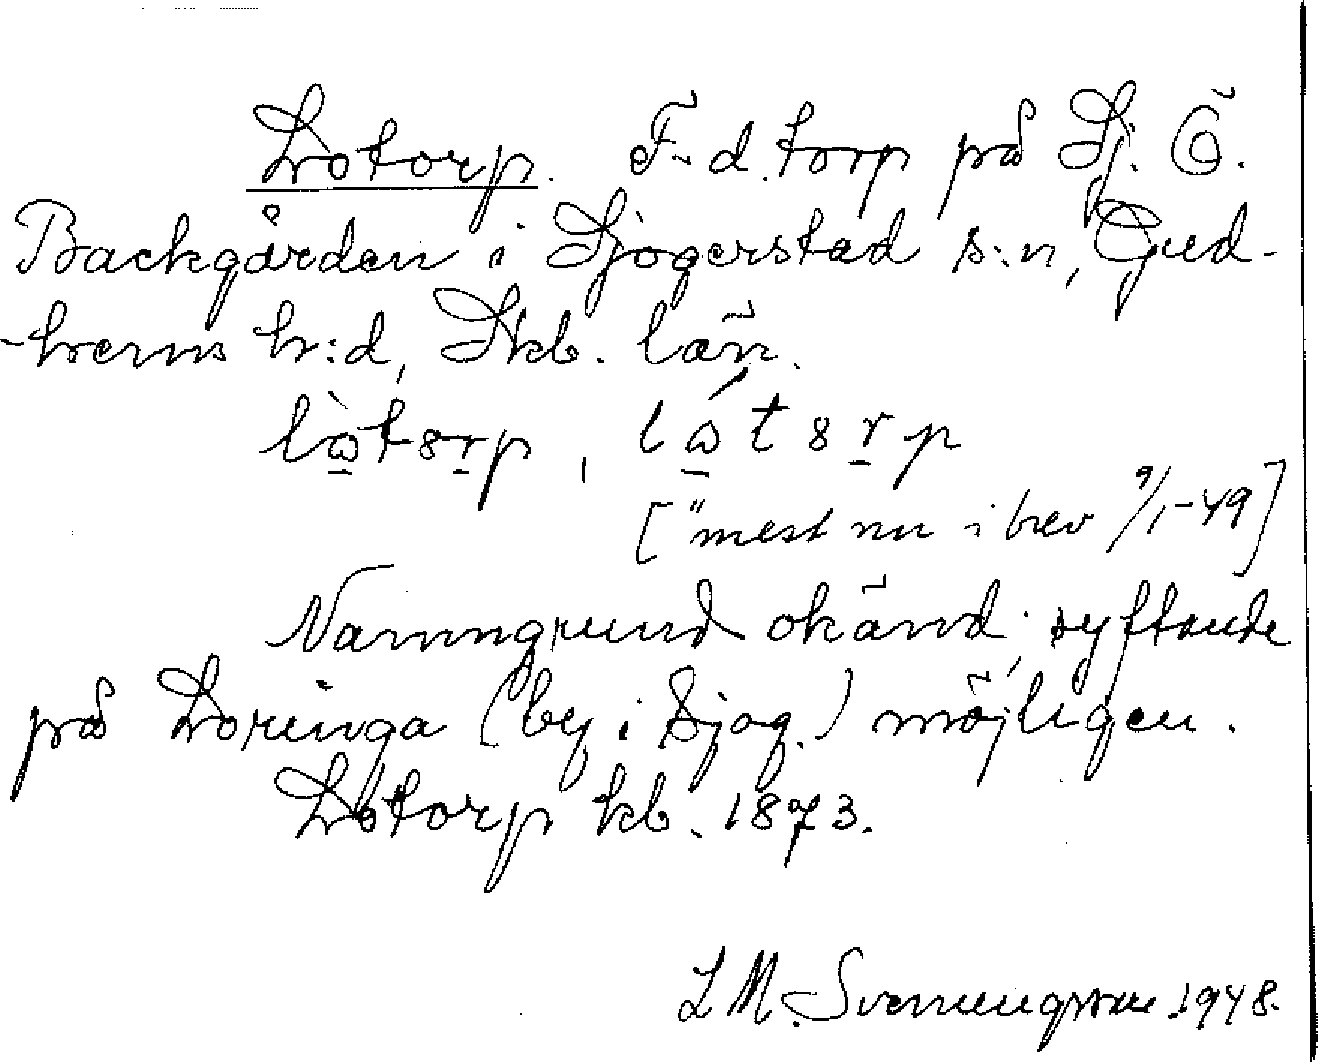 Lotorp. F. d. torp på Sj. Ö.
Backgården i Sjögerstad s:n, Gud-
-hems h:d, Skb. län.
[" mest nu i brev 9/1-49]
Namngrund okänd; syftande
på Loringa (by i Sjög.) möjligen.
Lotorp kb. 1873.
L M. Svenungsson 1948.